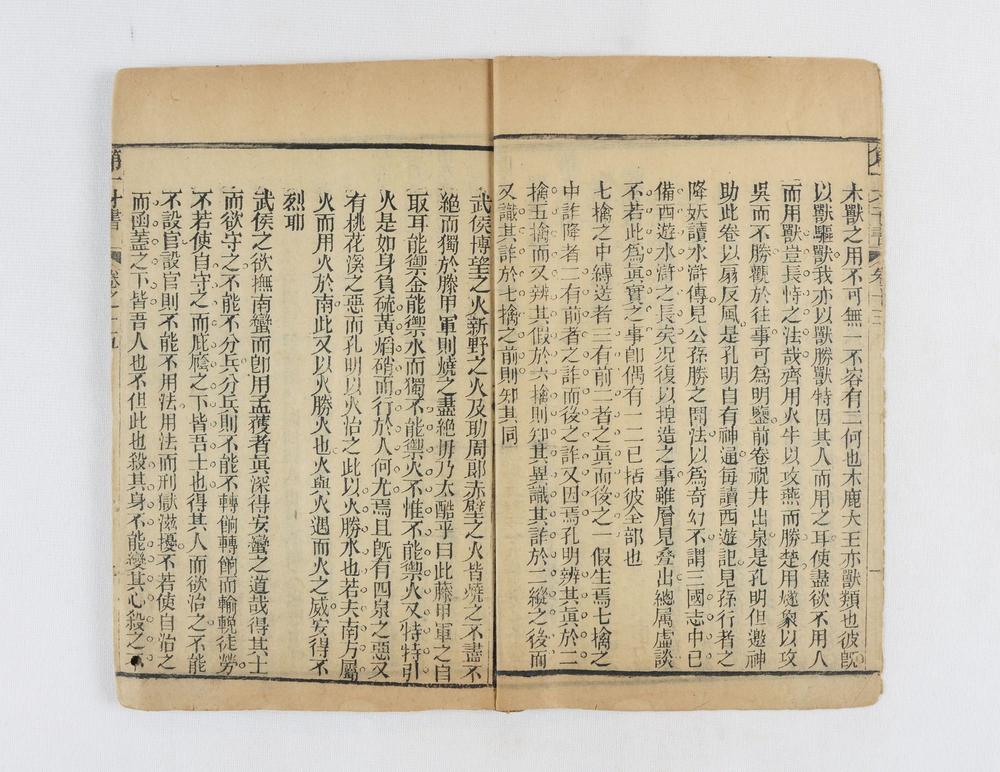 木獸之用不可無一不容有三何也木鹿大王亦獸類也彼旣
以獸驅獸我亦以獸勝獸特因其人而用之耳使盡欲不用人
而用獸豈長恃之法哉齊用火牛以攻燕而勝楚用燧象以攻
吳而不勝觀於往事可為明鑒前卷祝井出泉是孔明但邀神
助此卷以扇反風是孔明自有神通每讀西遊記見孫行者之
降妖讀水滸傳見公孫勝之鬪法以為奇幻不謂三國志中已
備西遊水滸之長矣况復以揑造之事雖層見叠出總属虛談
不若此為眞實之事卽偶有一二已括彼全部也
七擒之中縛送者三有前二者之眞而後之一假生焉七擒之
中詐降者二有前者之詐而後之詐又因焉孔明辨其眞於二
擒五擒而又辨其假於六擒則知其異識其詐於二縱之後而
又識其詐於七擒之前則知其同
武侯博望之火新野之火及助周郎赤壁之火皆燒之不盡不
絶而獨於籐甲軍則燒之盡絶毋乃太酷乎曰此藤甲軍之自
取耳能禦金能禦水而獨不能禦火不惟不能禦火又特特引
火是如身負硫黃焰硝而行於人何尤焉且旣有四泉之惡又
有桃花溪之惡而孔明以火治之此以火勝水也若夫南方屬
火而用火於南此又以火勝火也火與火遇而火之威安得不
烈耶
武侯之欲撫南蠻而卽用孟獲者眞深得安蠻之道哉得其土
而欲守之不能不分兵分兵則不能不轉餉轉餉而輸輓徒勞
不若使自守之而庇廕之下皆吾土也得其人而欲治之不能
不設官設官則不能不用法用法而刑獄滋擾不若使自治之
而函蓋之下皆吾人也不但此也殺其身不能變其心殺之一
第一才書
卷之十五